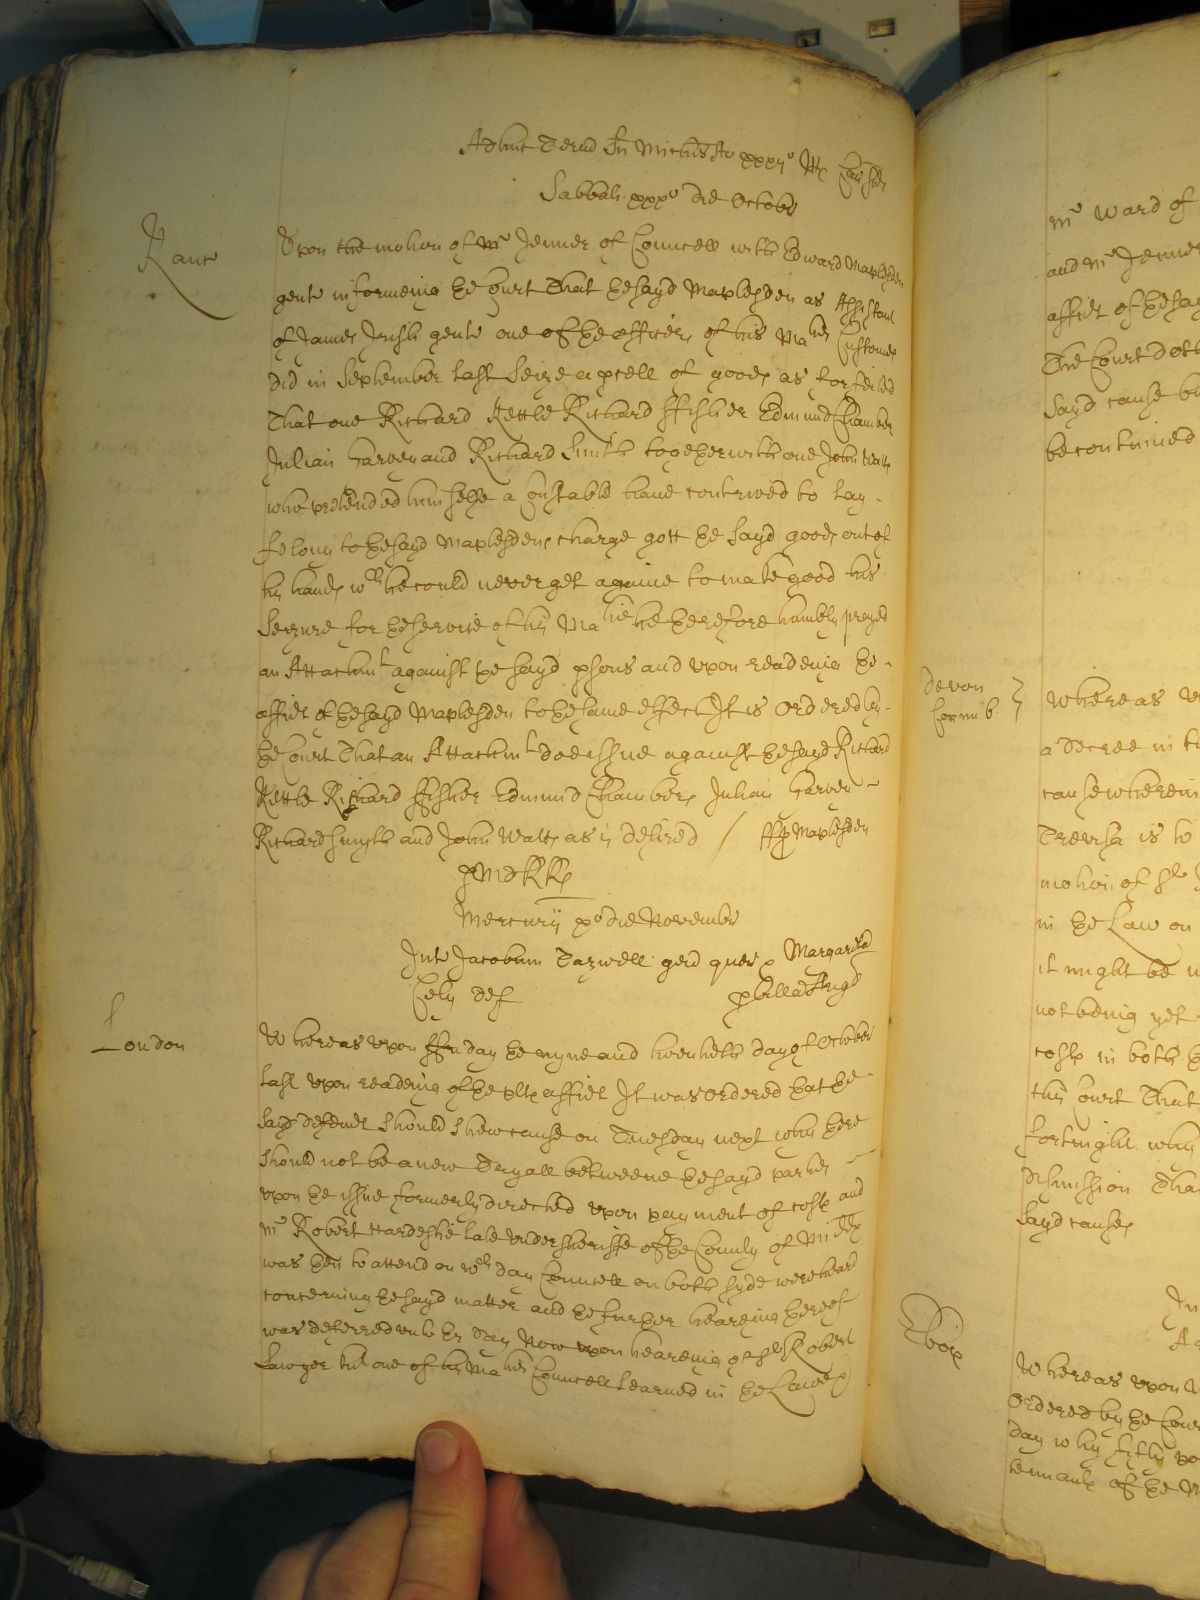 Adhuc Term Sci Michis Ao xxxijo
Sabbati xxxo die Octobr
Kanc
Upon the mocion of Mr Jenner of Councell with Edward Maplesden
gent informeing the Court That the sayd Maplesden as Assistant
of James Irish gent one of the officers of his Maties Customes
did in September last Seize a pcell of goods as forfeited
That one Richard Kettle Richard ffisher Edmund Chambers
Julian Harvey and Richard Smith together with one John Watts
who pretended himselfe a Constable have contrived to lay
felony to the sayd Maplesdens charge gott the sayd goods out of
his hands wch he could never get againe to make good his
Seizure for the service of his Matie he therefore humbly prayed
an Attachmt against the sayd psons and upon readeing the
affidt of the sayd Maplesden to the same effect It is Ordered by
the Court That an Attachmt doe issue against the sayd Richard
Kettle Richard ffisher Edmund Chambers Julian Harvey
Richard Smyth and John Watts as is desired / Maplesden
Mercurij die Novembr
Int Jacobum Tazwell quer Margaretd
Cely def
London
Whereas upon ffryday the nyne and twentieth day of October
last upon readeing of the plts affidt It was ordered that the
sayd defendt should shew cause on Tuesday next why there
should not be a new Tryall betweene the sayd parties
upon the issue formerly directed upon payment of costs and
Mr Robert Hardeskie late undersheriffe of the County of Middx
was then to attend on wch day Councell on both syde were heard
concerning the sayd matter and the further heareing thereof
was deferred untill this day Now upon heareing of Sr Robert
Sawyer knt one of his Maties Councell Learned in the Lawes
Mr Ward of
and Mr Jenner
affidt of the say
The Court doth
sayd cause b
be continued
Devon
Cornub
Whereas u
a decree in t
cause wherein
Trevisa is to
mocion of Sr
in the Law on
it might be
not being yet
costs in both
this Court That
fortnight why
dismission Tha
sayd causes
In
Ebor
Whereas upon
Ordered by the Cour
day why fifty
tennants of the